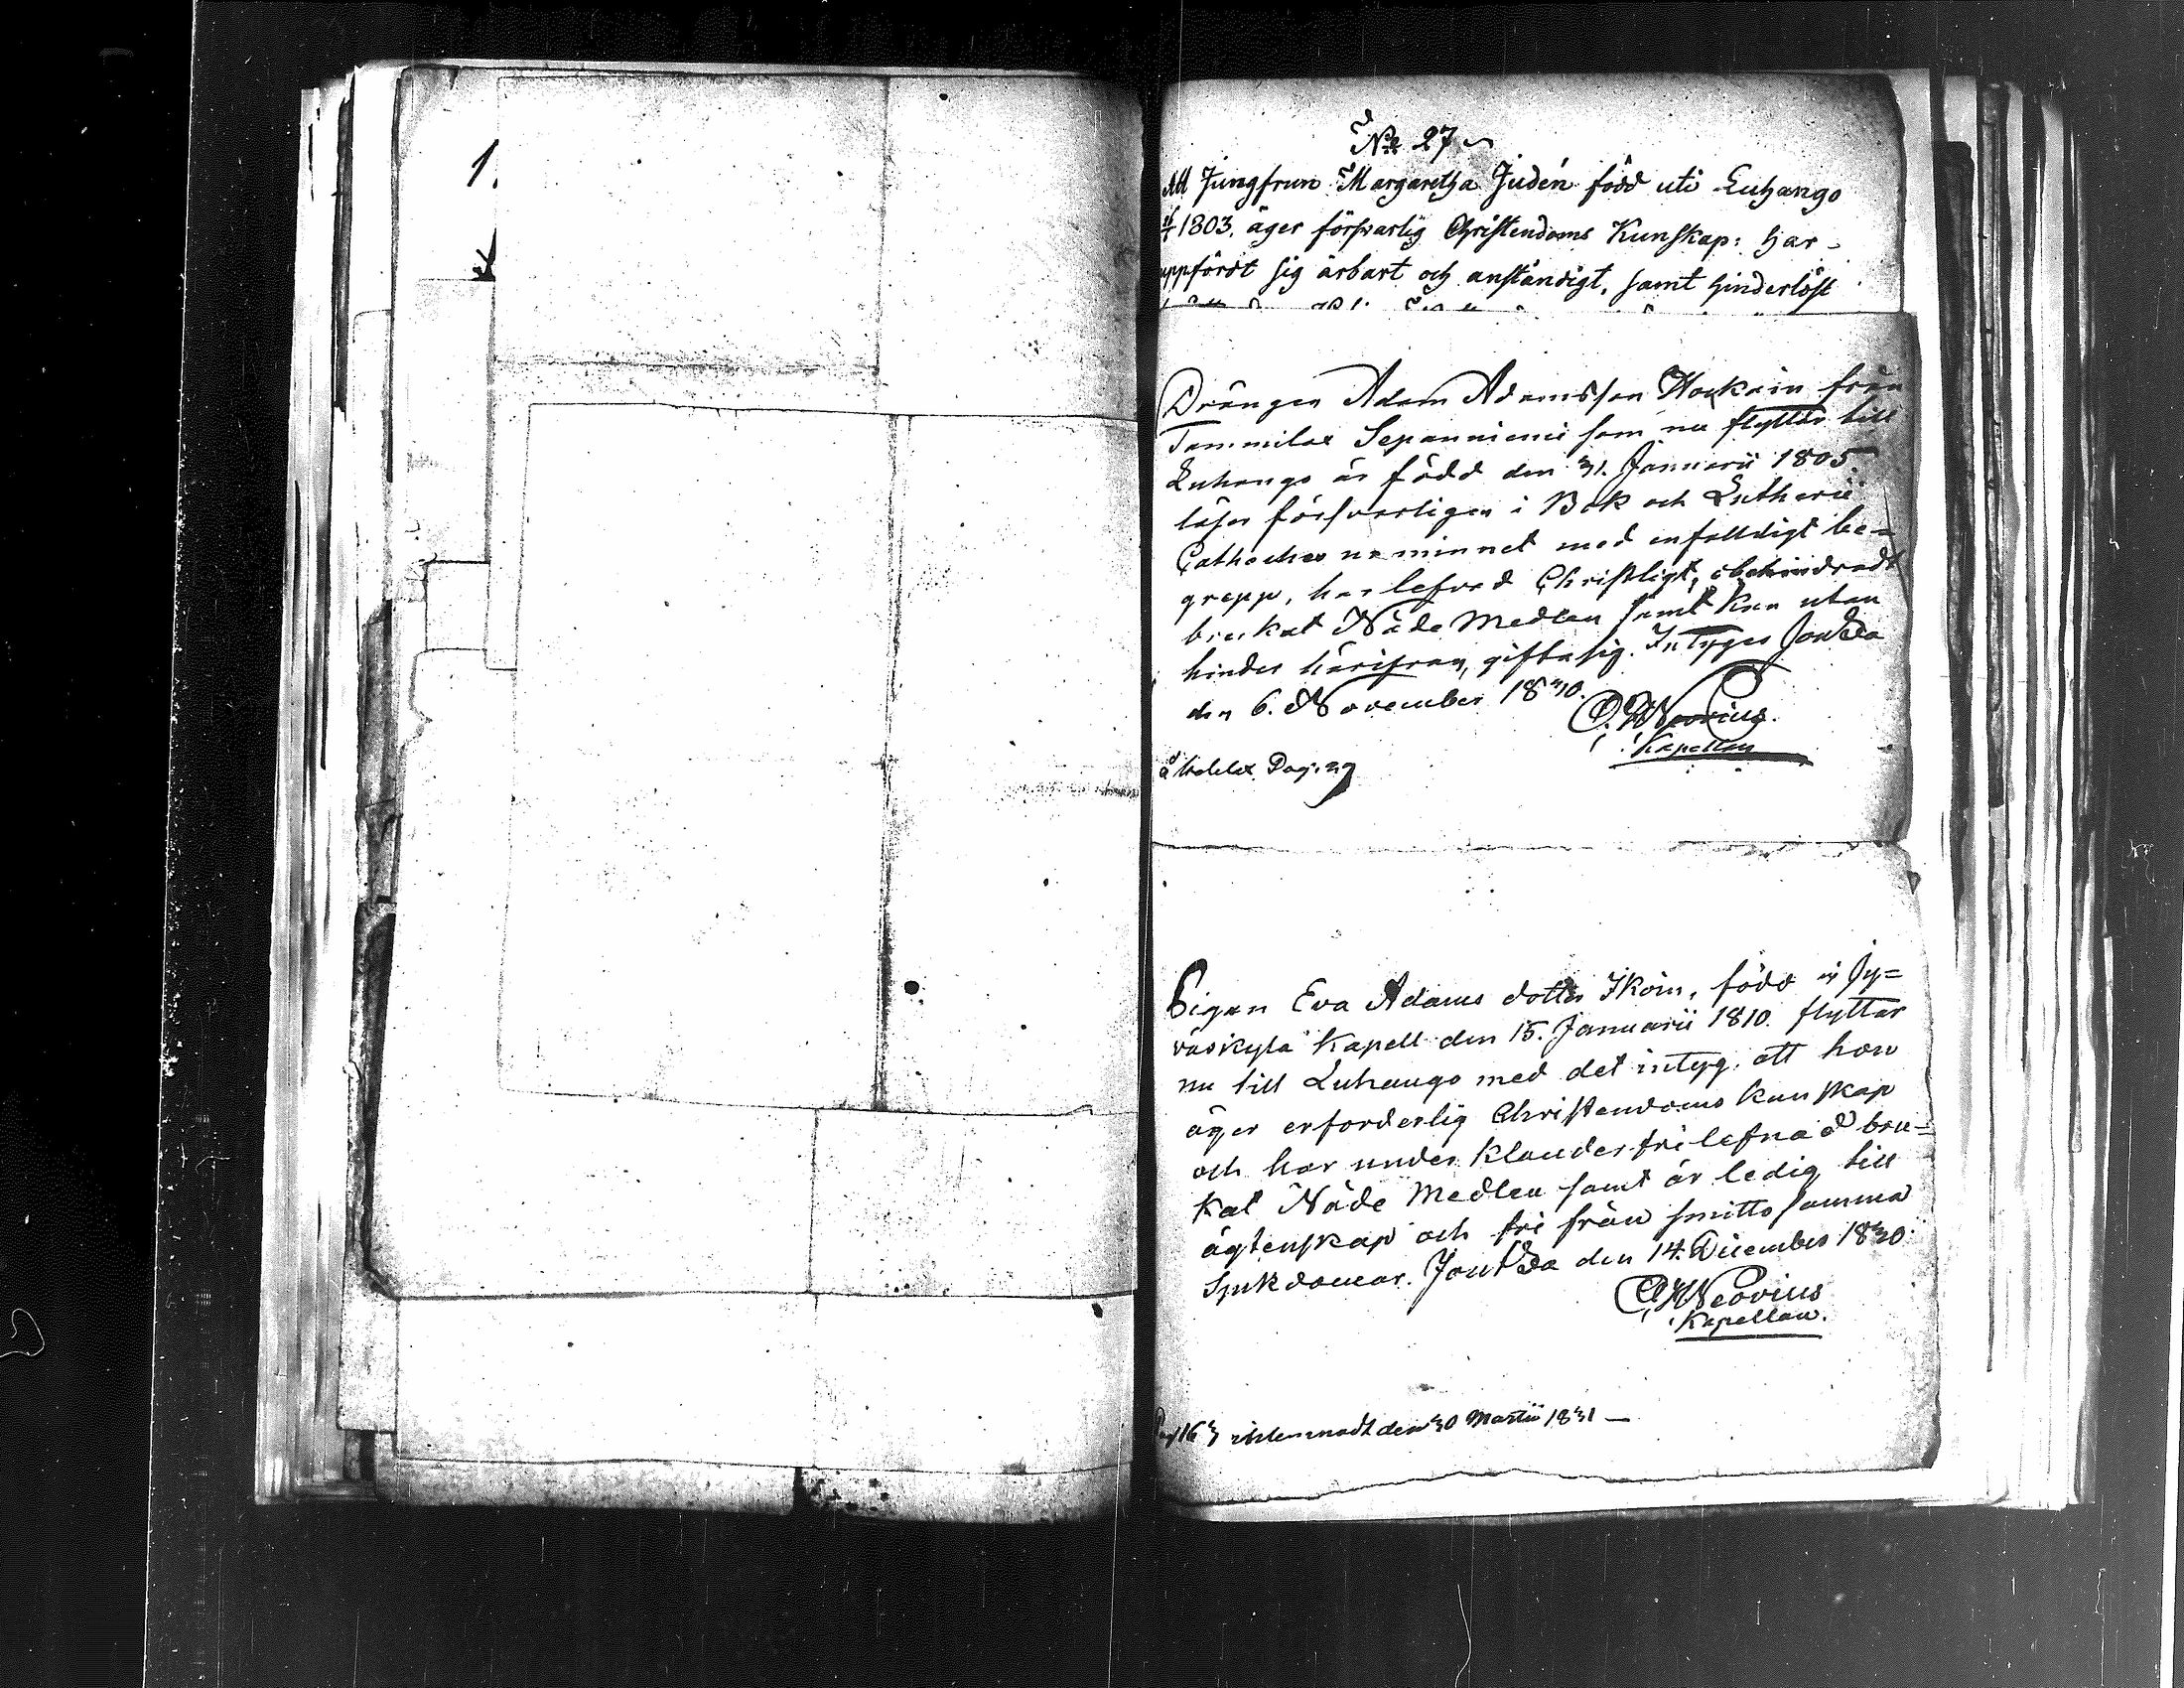 1.
No 27
Att Jungfrun Margaretha Judén född uti Luhango
1803, äger försvarlig Christendoms Kunskap: har
uppfördt sig ärbart och anständigt, samt hinderlöst
Drängen Adam Adamsson Hockain från
Tammilax Sepanniemi som nu flyttar till
Luhango är född den 31. Januarii 1805.
läser försvarligen i Bok och Lutherii
Catheches ur minnet med enfalldigt be-
grepp, har lefvad Christligt, obehindradt
bruckat Nåde Medlen samt kan utan
hinder härifrån, gifta sig. Intyges Joutsa
den 6. November 1830.
C. H. Neovius.
Kapellan
Pag. 27
Pigan Eva Adams dotter Ikoin, född i Jy=
väskylä Kapell den 15. Januarii 1810. flyttar
nu till Luhango med det intyg, att hon
äger erforderlig Christendoms kunskap
och har under klanderfri lefnad bru=
kat Nåde Medlen samt är ledig till
ägtenskap och fri från smittosamma
Sjukdomar. Joutsa den 14. December 1830.
C. H. Neovius
Kapellan.
Pag 163 den 30 Martii 1831 —